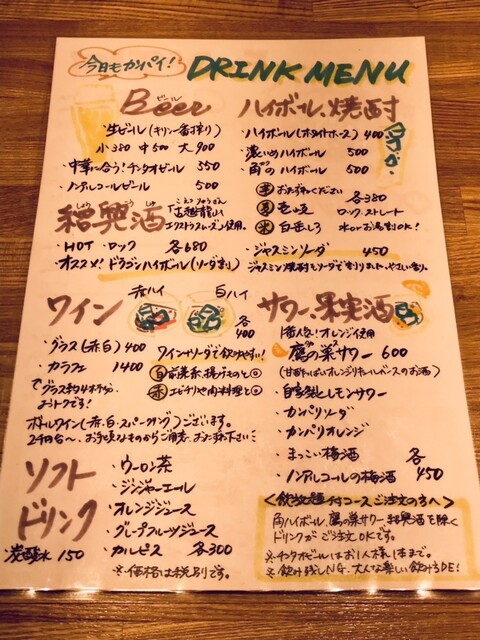 今日もカンパイ!
DRINK MENU
Beer
ビール
・生ビール(キリン一番搾り)
小380 中500 大900
・中華に合う!チンタオビール 550
・ノンアルコールビール 500
紹興酒
しょうこうしゅ
こえつりゅうざん
「古越龍山
エクストラスムーズ」使用。
・HOT ・ロック 各680
・オススメ!ドラゴンハイボール(ソーダ割)
ハイボール、焼酎
・ハイボール(ホワイトホース) 400
・濃いめハイボール 500
・角のハイボール 500
おたずねください
麦 壱岐
米 白岳しろ
各380
ロック、ストレート
水orお湯割OK!
・ジャスミンソーダ 450
ジャスミン焼酎をソーダで割りました。やさしい香り。
ワイン
赤ハイ 白ハイ
各400
・グラス(赤白) 400
・カラフェ 1400
でグラス約4杯
おトクです!
ワインソーダで飲みやすい!!
白 前菜、揚げものと◎
赤 エビチリや肉料理と◎
ボトルワイン(赤・白・スパークリング)ございます。
2千円台〜、お手頃なものからご用意、おたずね下さい
サワー、果実酒
1番人気!オレンジ使用
・鷹の巣サワー 600
(甘酸っぱいオレンジリキュールベースのお酒)
・自家製レモンサワー
・カンパリソーダ
・カンパリオレンジ
・まっこい梅酒
・ノンアルコールの梅酒
各450
ソフトドリンク
・ウーロン茶
・ジンジャーエール
・オレンジジュース
・グレープフルーツジュース
・カルピス 各300
炭酸水 150
※価格は税別です。
<飲放題付コースご注文の方へ>
角ハイボール、鷹の巣サワー、紹興酒を除く
ドリンクがご注文OKです。
※チンタオビールはお1人様1本まで。
※飲み残しNG、大人な楽しい飲み方DE!